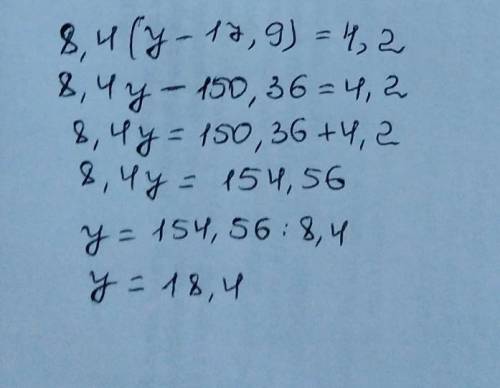 8,4(y-17,9)=4,2
8,4y-150,36=4,2
8,4y=150,36+4,2
8,4y=154,56
y=154,56:8,4
y=18,4